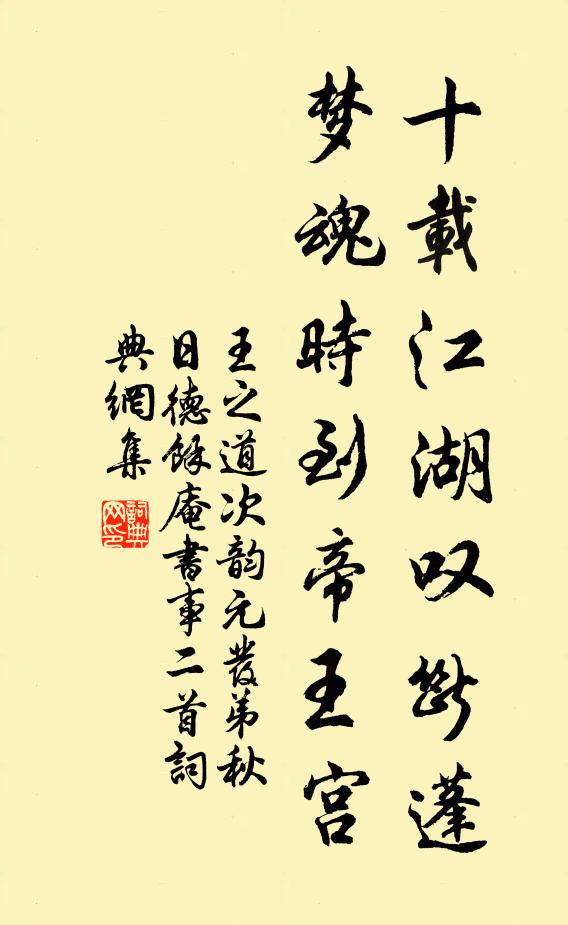 十載江湖叹断蓬
梦魂時到帝王宫
王之道次韵元發弟秋
日德馀庵書事二首詞
典網集
詞典网印